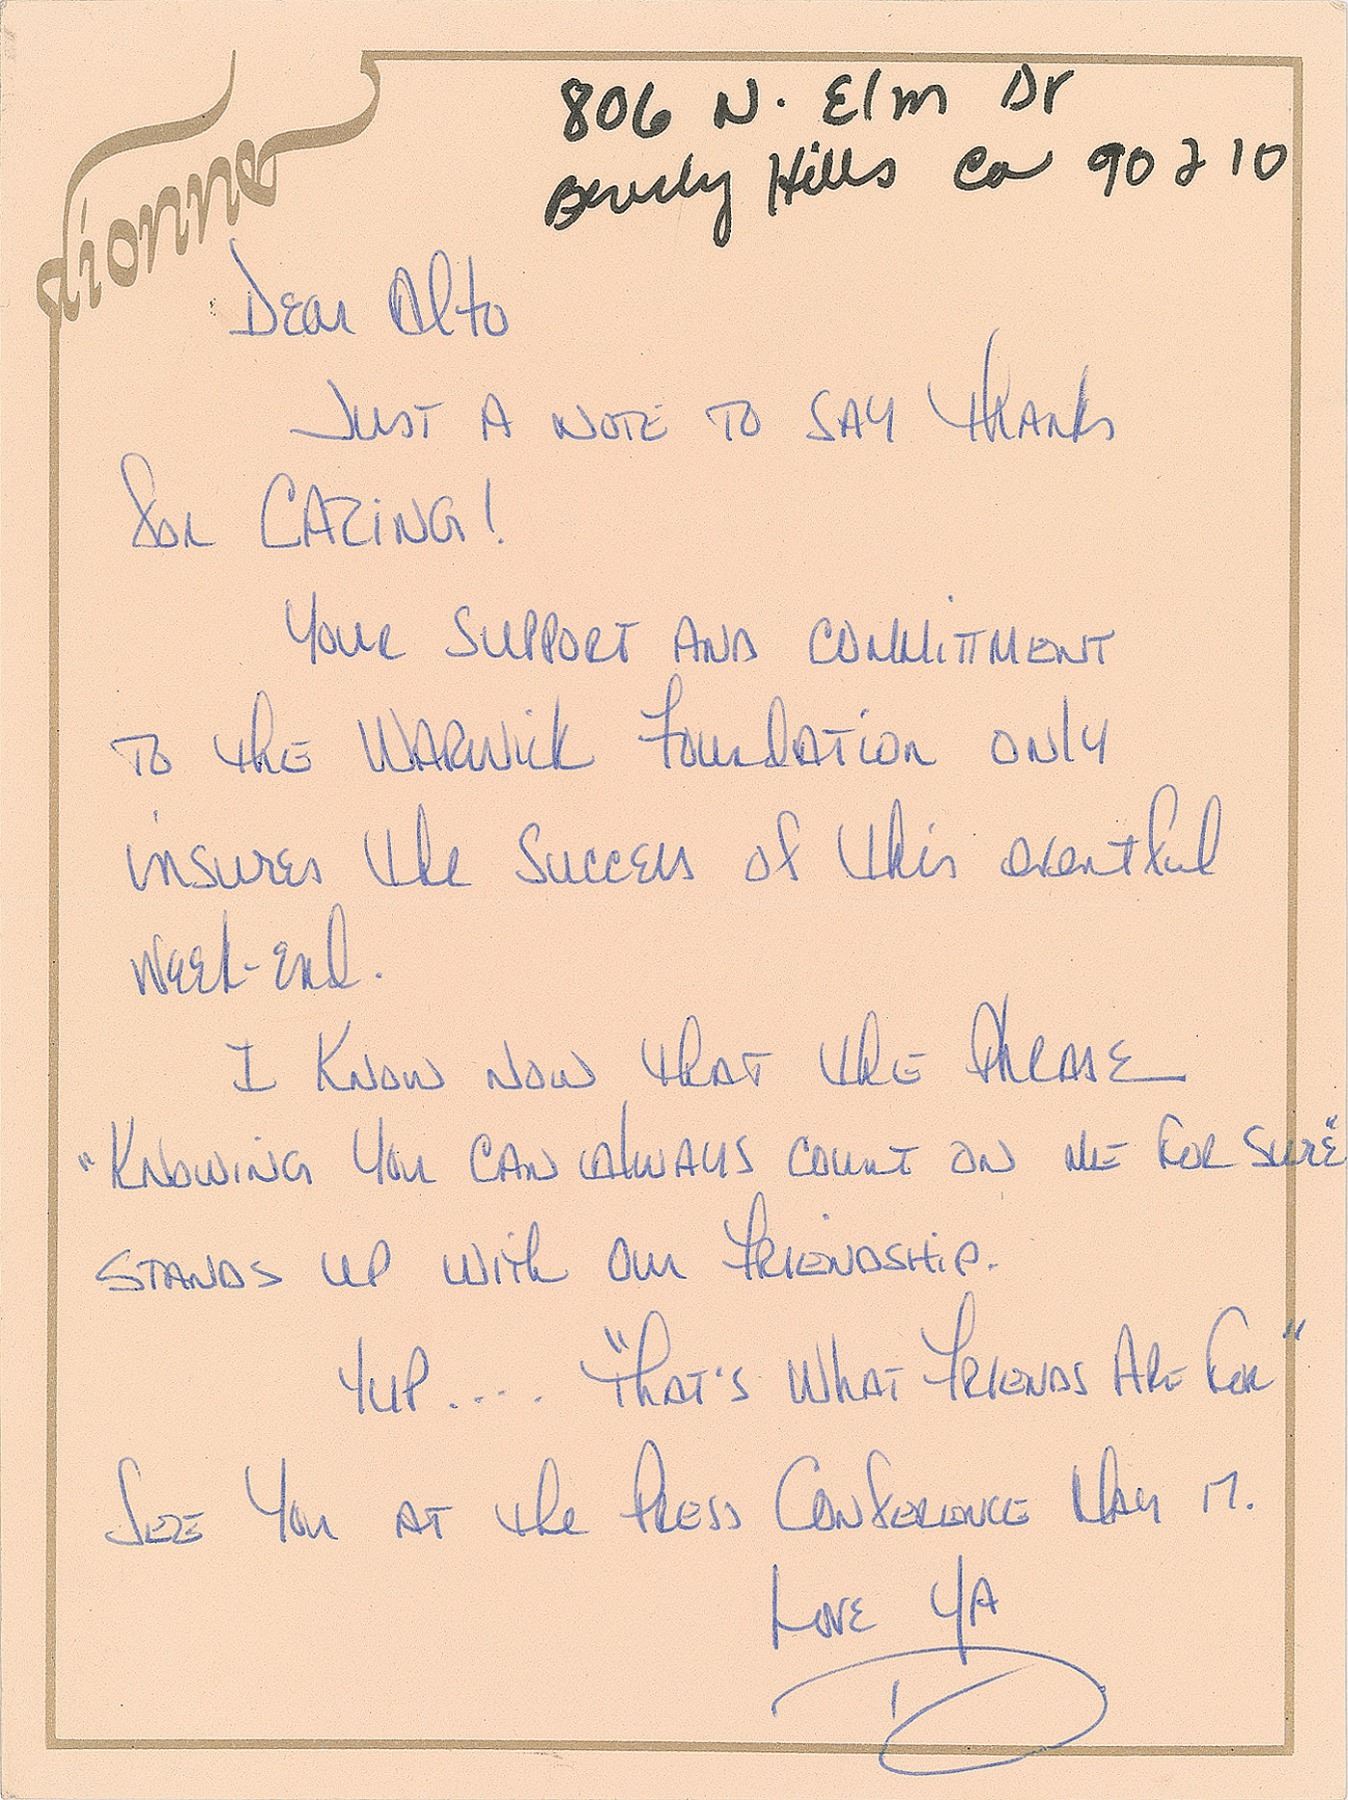 dionne
806 N. Elm Dr
Beverly Hills Ca 90210
Dear Alto
Just a note to say thanks
for caring!
Your support and committment
to the Warwick Foundation only
insures the success of this eventful
week-end.
I know now that the phrase
"Knowing you can always count on me for sure"
stands up with our friendship.
Yup.... "That's What Friends Are For"
See you at the Press Conference May 17.
Love Ya
D